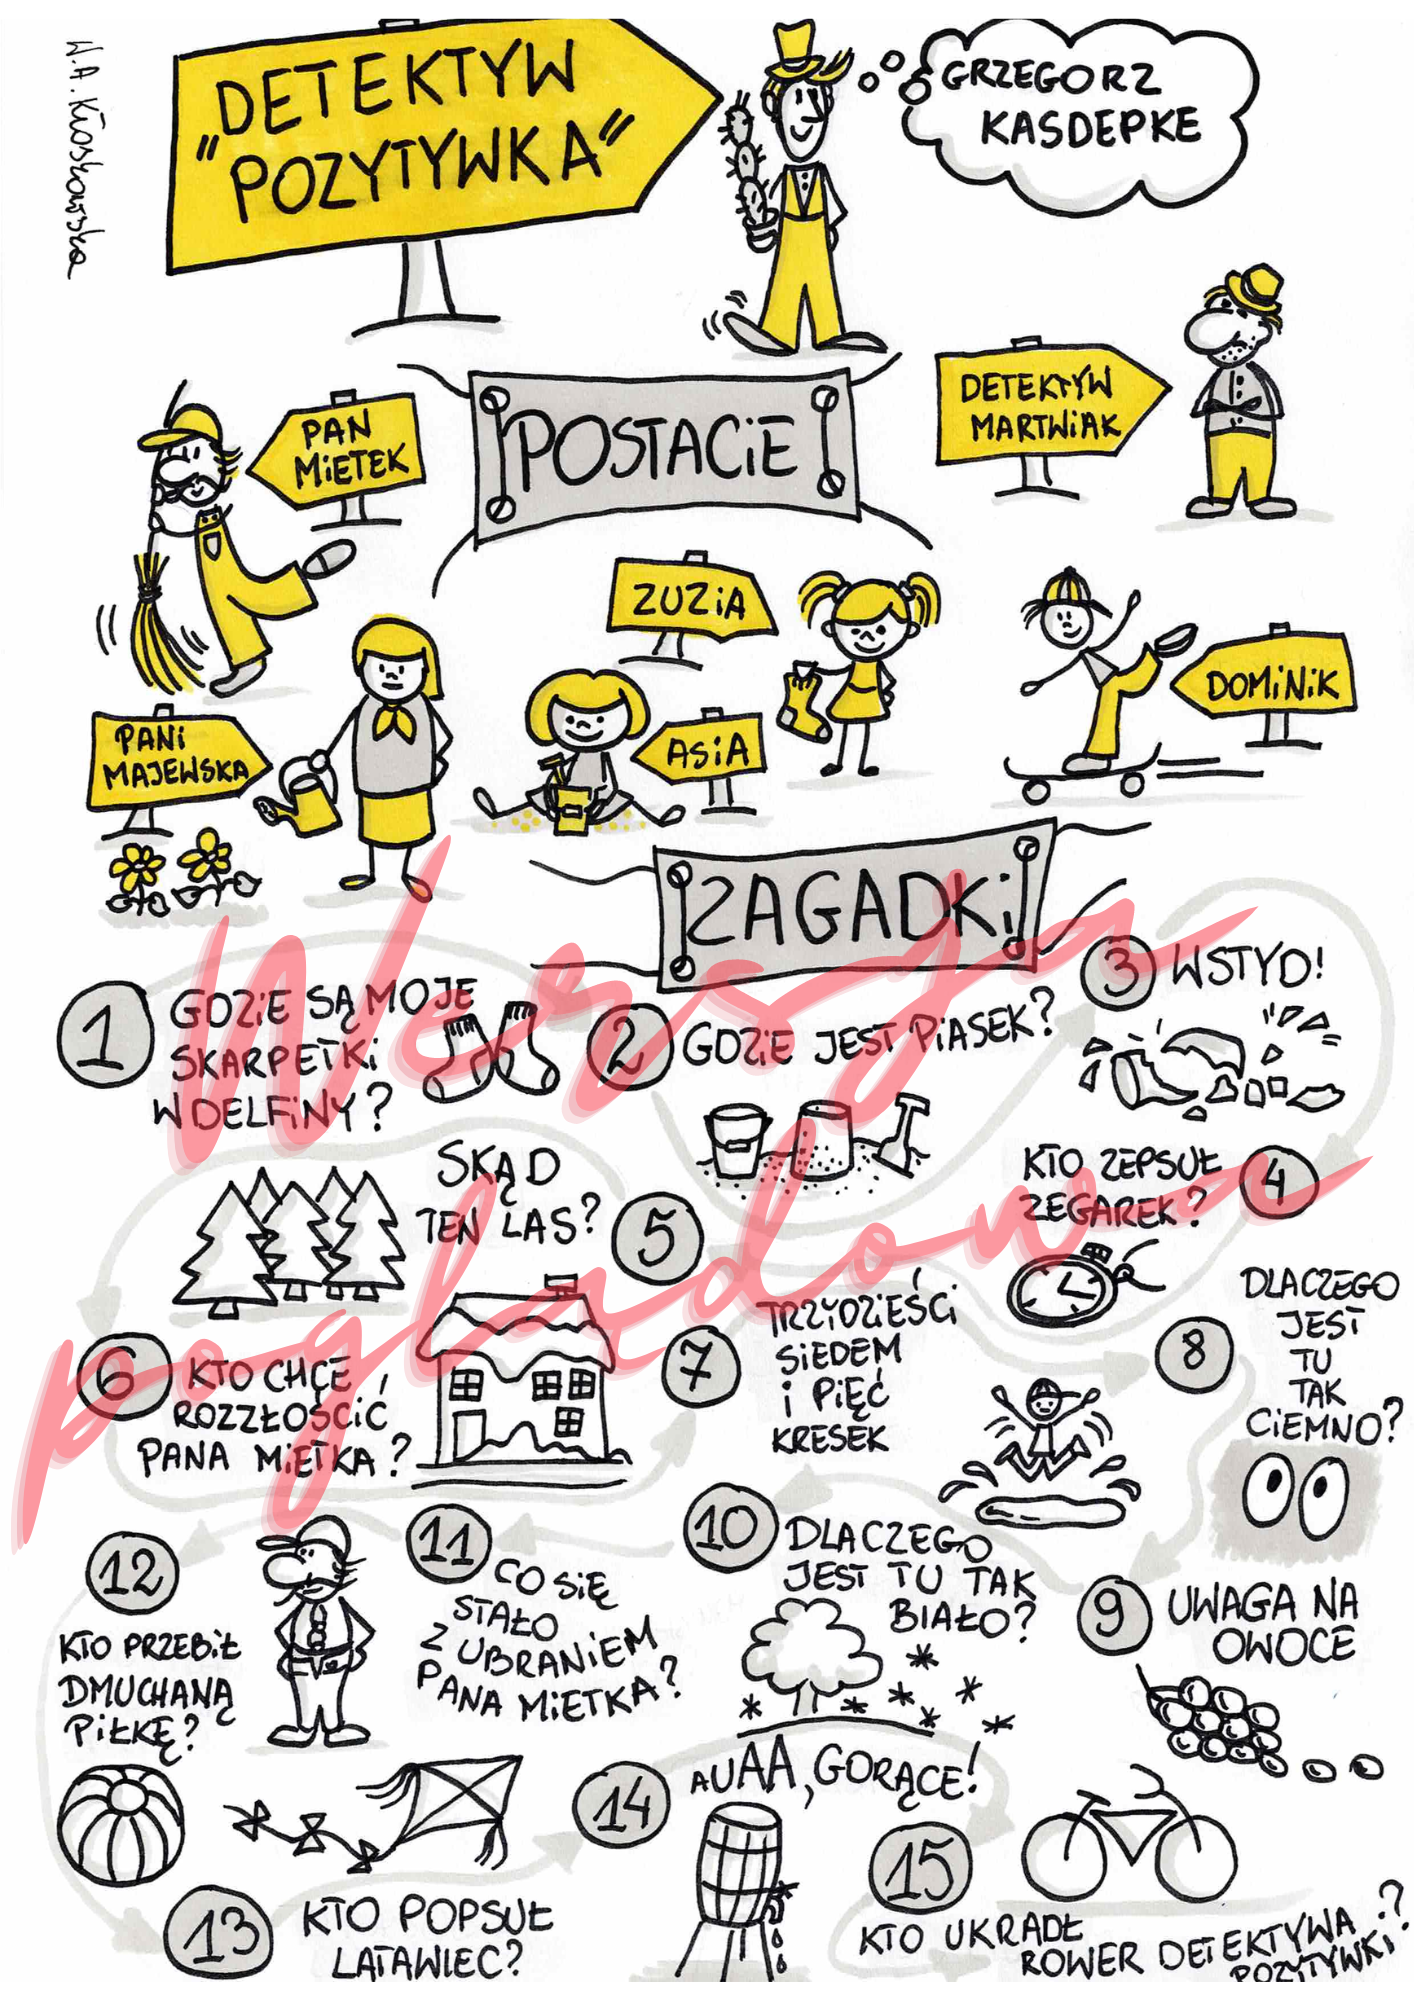 W.A. Kłoskowska
DETEKTYW
"POZYTYWKA"
GRZEGORZ
KASDEPKE
POSTACiE
DETEKTYW
MARTWiAK
PAN
MiETEK
ZUZiA
DOMiNiK
PANi
MAJEWSKA
ASiA
ZAGADKi
1
GDZiE SĄ MOJE
SKARPETKi
W DELFiNY?
2
GDZiE JEST PiASEK?
3
WSTYD!
4
KTO ZEPSUŁ
ZEGAREK?
5
SKĄD
TEN LAS?
6
KTO CHCE
ROZZŁOŚCiĆ
PANA MiETKA?
7
TRZYDZiEŚCi
SiEDEM
i PiĘĆ
KRESEK
8
DLACZEGO
JEST
TU
TAK
CiEMNO?
9
UWAGA NA
OWOCE
10
DLACZEGO
JEST TU TAK
BiAŁO?
11
CO SiĘ
STAŁO
Z UBRANiEM
PANA MiETKA?
12
KTO PRZEBiŁ
DMUCHANĄ
PiŁKĘ?
13
KTO POPSUŁ
LATAWIEC?
14
AUAA, GORĄCE!
15
KTO UKRADŁ
ROWER DETEKTYWA
POZYTYWKi?
Wersja
poglądowa